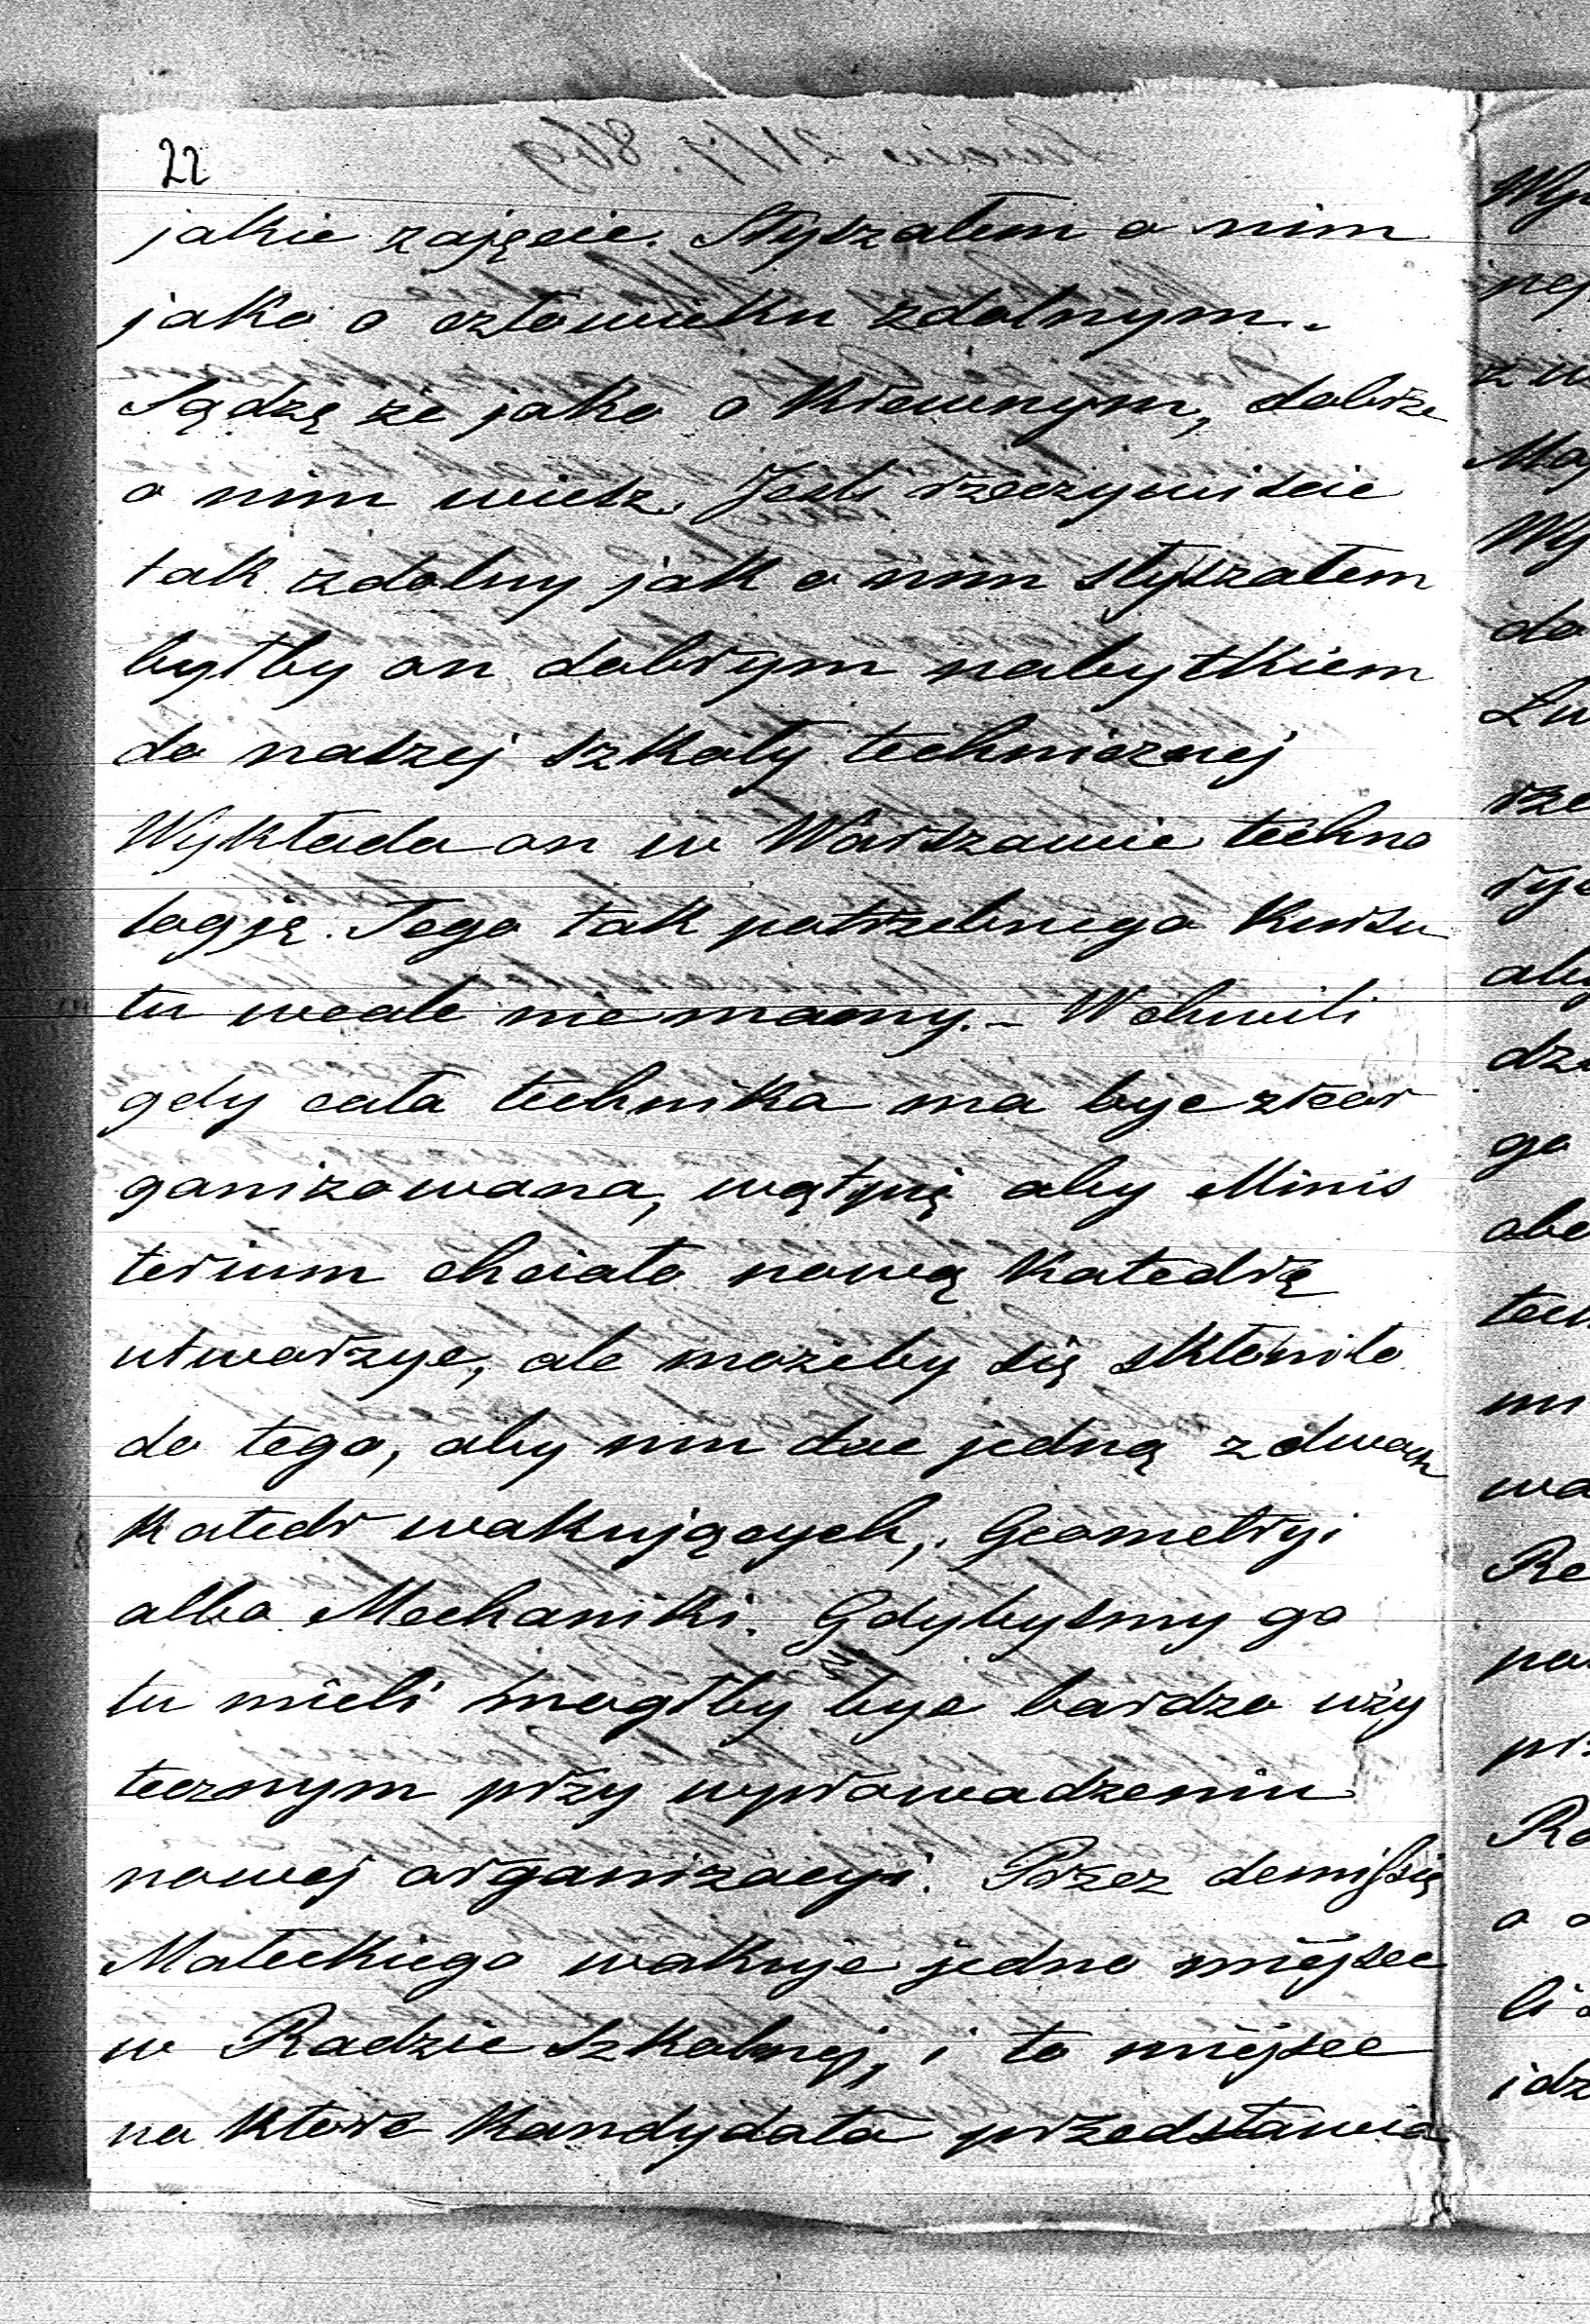 22
jakie zajęcie. Słyszałem o nim
jako o człowieku zdolnym.
Sądzę że jako o Krewnym, dobrze
o nim wiesz. Jeśli rzeczywiscie
tak zdolny jak o nim słyszałem
byłby on dobrym nabytkiem
do naszej szkoły technicznej
Wykłada on w Warszawie techno
logję. Tego tak potrzebnego Kursu
tu wcale nie mamy. – W chwili
gdy cała technika ma byc zreor
ganizowana, wątpię aby Minis
terium chciało nową Katedrę
utworzyc, ale możeby się skłoniło
do tego, aby mu dac jedną z dwoch
Katedr wakujących, Geometryi
albo Mechaniki. Gdybysmy go
tu mieli mogłby byc bardzo uży
tecznym przy wyprowadzeniu
nowej organizacyi. Przez demissię
Małeckiego wakuje jedno miejsce
w Radzie szkolnej, i to miejsce
na Ktore Kandydata przedstawia